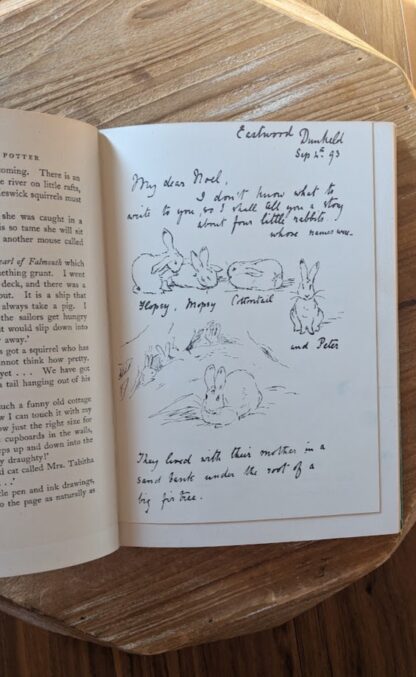 POTTER
oming. There is an
e river on little rafts,
eswick squirrels must
she was caught in a
is so tame she will sit
another mouse called
earl of Falmouth which
mething grunt. I went
deck, and there was a
out. It is a ship that
always take a pig. I
the sailors get hungry
it would slip down into
away.'
got a squirrel who has
annot think how pretty,
yet . . . We have got
a tail hanging out of his
such a funny old cottage
w I can touch it with my
ow just the right size for
cupboards in the walls,
eps up and down into the
y draughty!'
d cat called Mrs. Tabitha
. . .'
le pen and ink drawings,
to the page as naturally as
Eastwood Dunkeld
Sep 4th 93
My dear Noel,
I don't know what to
write to you, so I shall tell you a story
about four little rabbits
whose names were—
Flopsy, Mopsy Cottontail
and Peter
They lived with their mother in a
sand bank under the root of a
big fir tree.